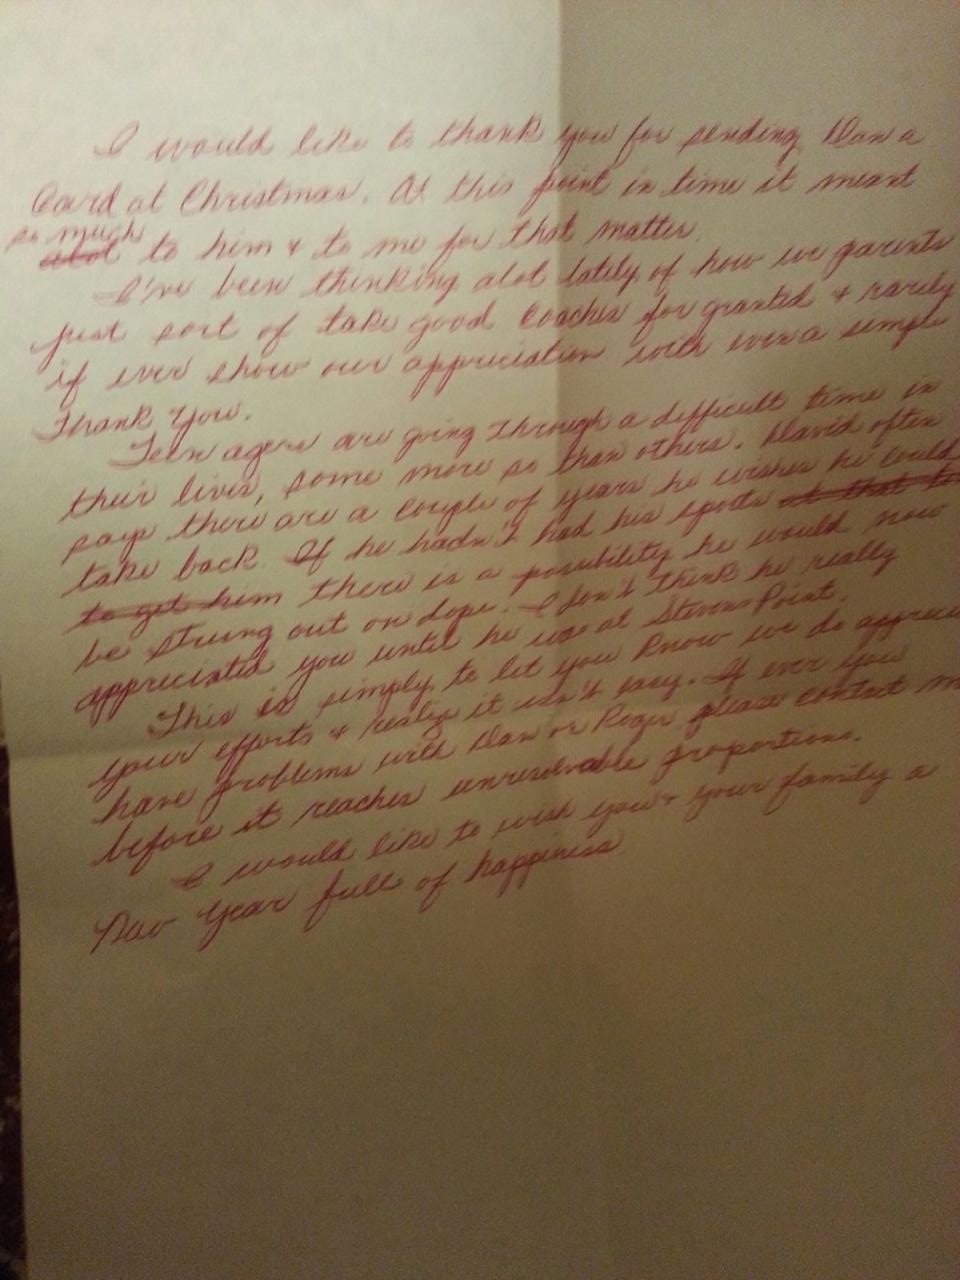 I would like to thank you for sending Dan a
Card at Christmas. At this point in time it meant
so much
alot to him & to me for that matter.
I've been thinking alot lately of how we parents
just sort of take good coaches for granted & rarely
if ever show our appreciation with even a simple
Thank You.
Teen agers are going through a difficult time in
their lives, some more so than others. David often
says there are a couple of years he wishes he could
take back. If he hadn't had his sports at that
to get him there is a possibility he would now
be strung out on dope. I don't think he really
appreciated you until he was at Stevens Point.
This is simply to let you know we do
your efforts & realize it isn't easy. If ever you
have problems with Dan or Roger please contact
before it reaches unresolvable proportions.
I would like to wish you & your family a
New Year full of happiness